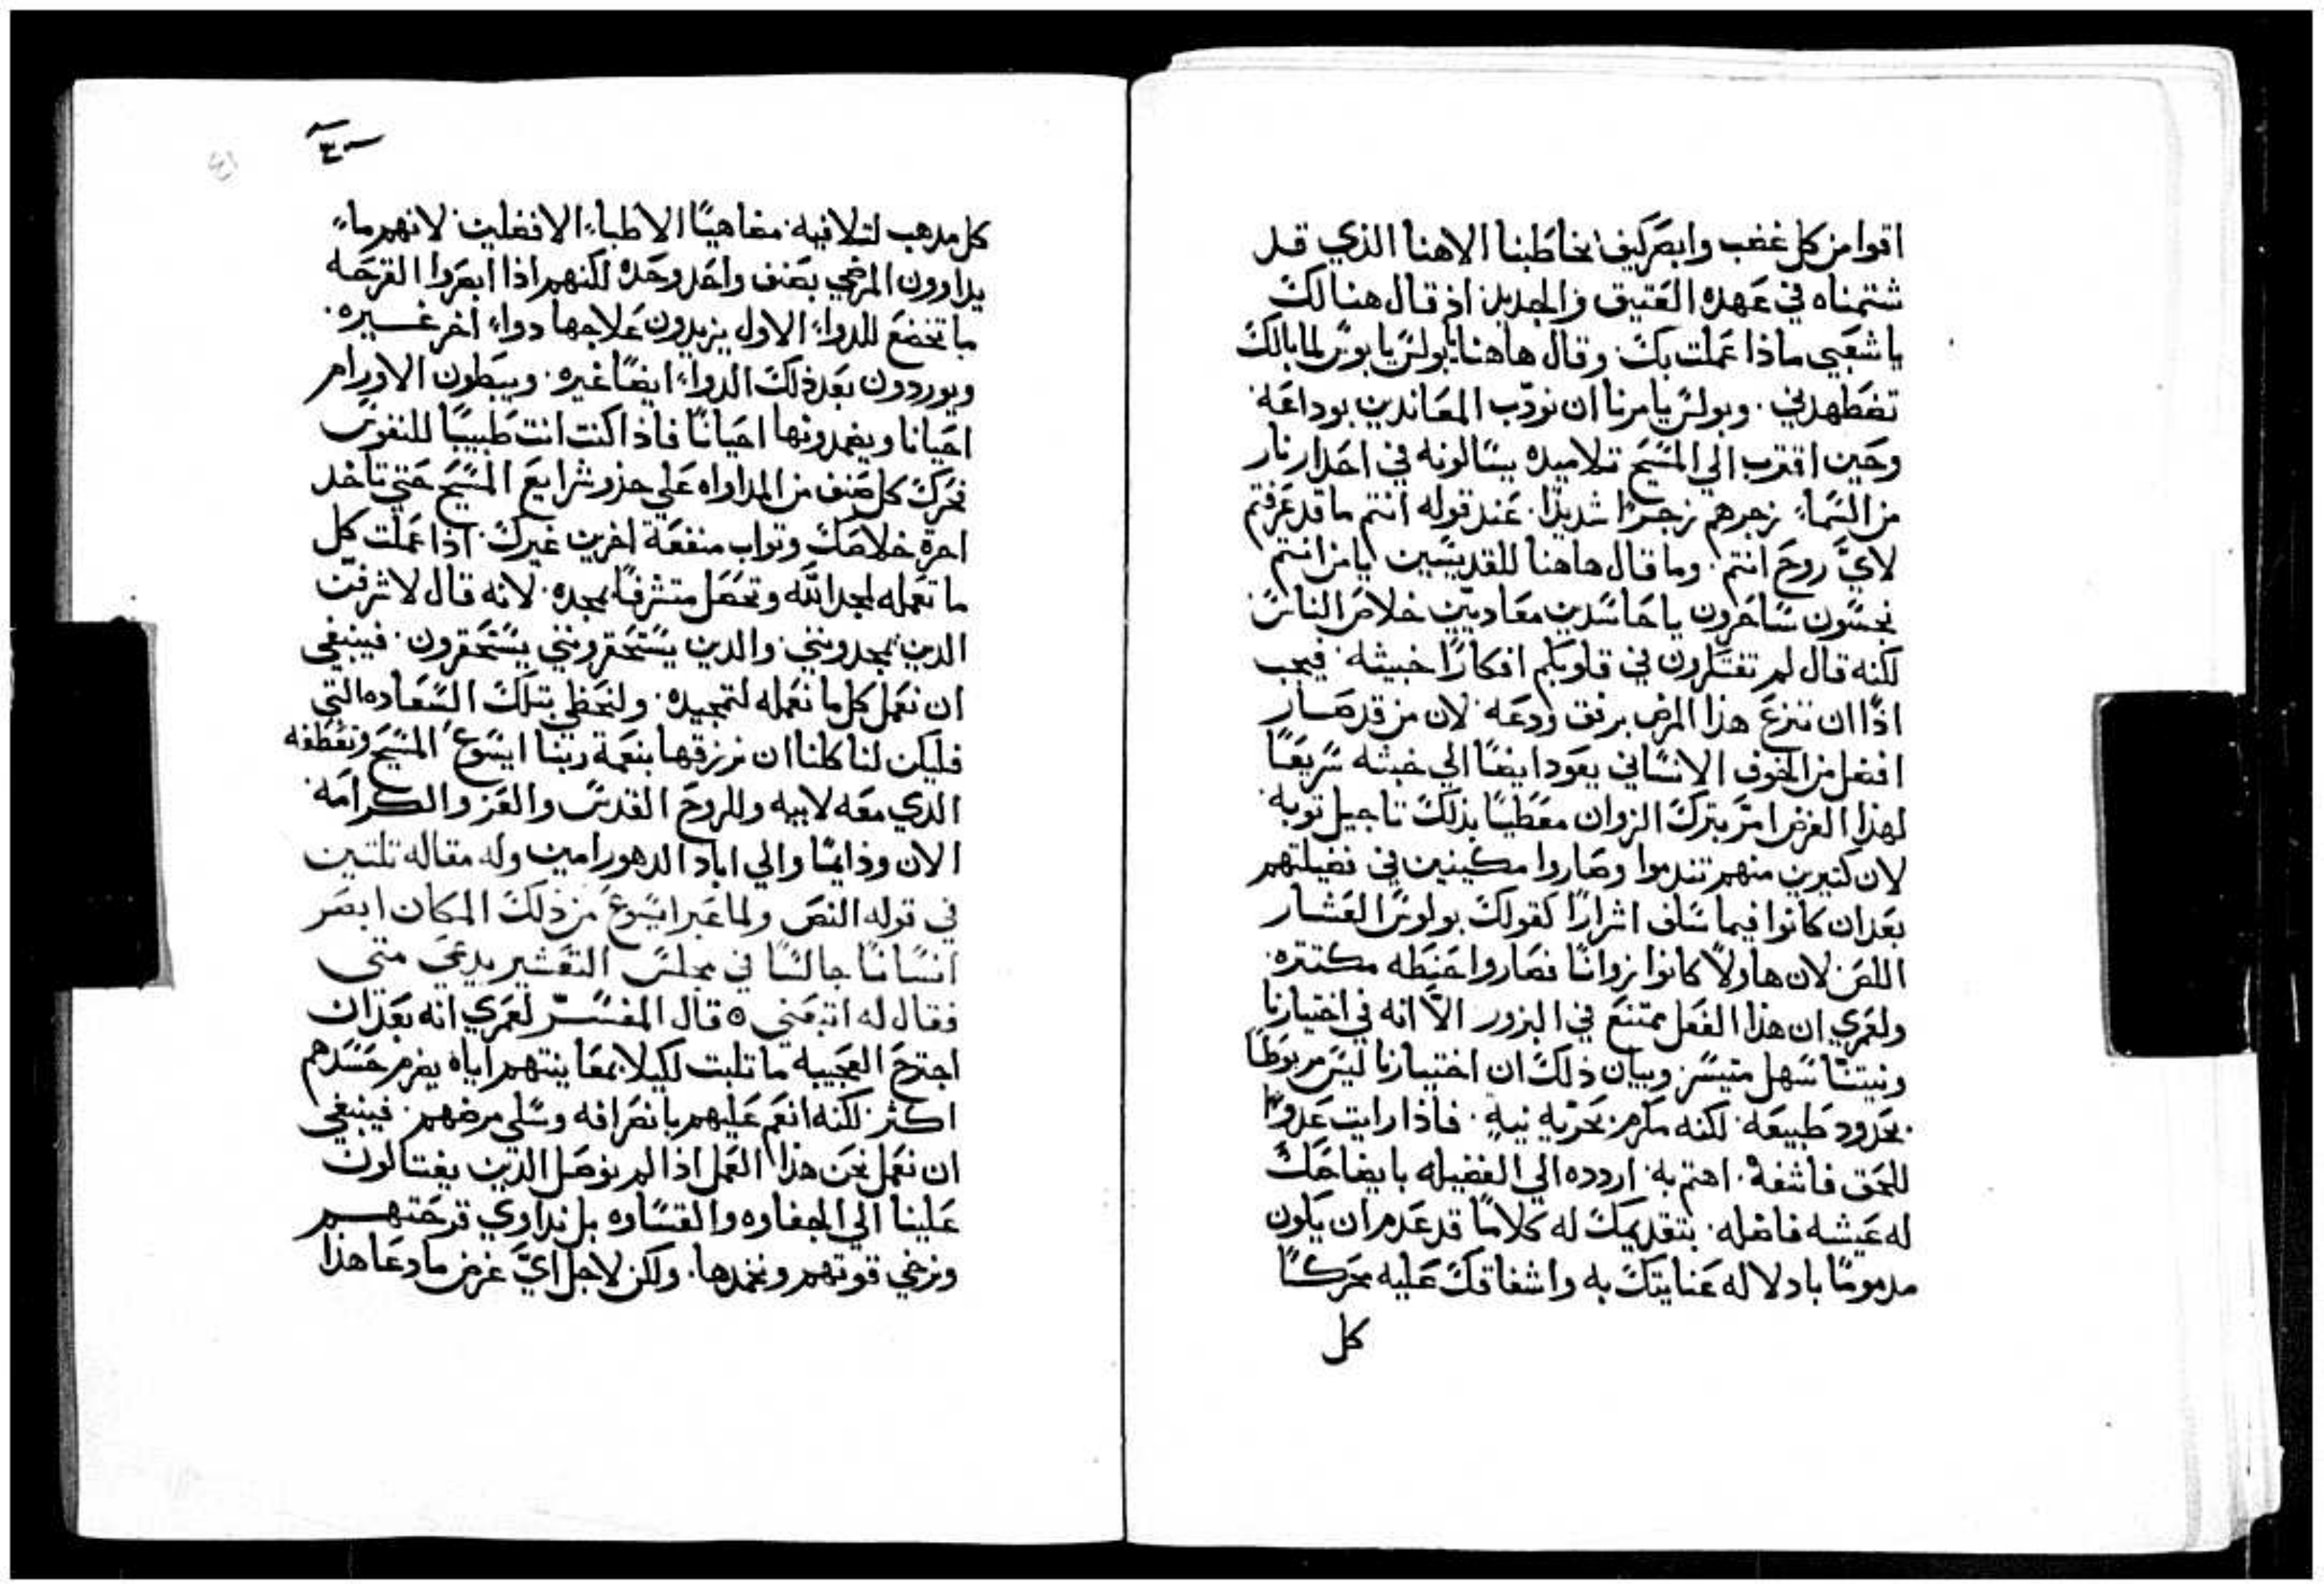 اقوا من كل غضب وابصر كيف يخاطبنا الاهنا الذي قد
شتمناه في عهده العتيق والجديد اذ قال هنالك
يا شعبي ماذا عملت بك. وقال هاهنا يا بولس يا بولس لما بالك
تضطهدني. وبولس يامرنا ان نودّب المعاندين بوداعة.
وحين اقترب الي المسيح تلاميذه يسالونه في احدار نار
من السماء زجرهم زجرًا شديدًا. عند قوله انتم ما قد عرفتم
لايّ روح انتم. وما قال هاهنا للقديسين يا من انتم
نجسون ساحرون يا حاسدين معاديين خلاص الناس.
لكنه قال لم تفتكرون في قلوبكم افكارًا خبيثه. فيجب
اذًا ان ننزع هذا المرض برفق ودعه. لان من قد صار
افضل من الخوف الانساني يعود ايضًا الي خبثه سريعًا
لهذا الغرض امر بترك الزوان معطيًا بذلك تاجيل توبه.
لان كتيرين منهم تندموا وصاروا مكينين في فضيلتهم
بعد ان كانوا فيما سلف اشرارًا كقولك بولوس العشار
اللص لان هاولا كانوا زوانًا فصاروا حنطه مكتنزه.
ولعمري ان هذا الفعل ممتنع في البزور الّا انه في اختيارنا
ونيتنا سهل متيسر وبيان ذلك ان اختيارنا ليس مربوطًا
بحدود طبيعه. لكنه مكرم بحريه نيه. فاذا رايت عدوًا
للحق فاشفه. اهتم به. اردده الي الفضيله بايضاحك
له عيشه فاضله. بتقديمك له كلامًا قد عدم ان يكون
مدمومًا بادلاله عنايتك به واشفاقك عليه محركًا
كل
كل مدهب لتلافيه. مضاهيًا الاطباء الافضلين. لانهم ما
يداوون المرضي بصنف واحد وحده لكنهم اذا ابصروا القرحه
ما تخضع للدواء الاول يزيدون علاجها دواء اخر غيره.
ويوردون بعد ذلك الدواء ايضًا غيره. ويبطون الاورام
احيانا ويضمدونها احيانًا فاذا كنت انت طبيبًا للنفوس
فحرك كل صنف من المداواه علي حذو شرايع المسيح حتي تاخد
اجرة خلاصك وتواب منفعة اخرين غيرك. اذا عملت كل
ما تعمله لمجد الله وتحصل متشرفًا بمجده. لانه قال لاشرفنّ
الدين يمجدونني والدين يستحقرونني يستحقرون. فينبغي
ان نعمل كل ما نعمله لتمجيده. ولنحظي بتلك السعاده التي
فليكن لنا كلنا ان نرزقها بنعمة ربنا ايسوع المسيح وتعطفه
الدي معه لابيه وللروح القدس والعز والكرامه
الان ودايمًا والي اباد الدهور امين وله مقاله تلتين
في قوله النص ولما عبر ايسوع من ذلك المكان ابصر
انسانًا جالسًا في مجلس التعشير يدعي متي
فقال له اتبعني ٥ قال المفسر لعمري انه بعد ان
اجترح العجيبه ما تلبت لكيلا بمعاينتهم اياه يضرم حسدهم
اكثر لكنه انعم عليهم بانصرافه وسلي مرضهم. فينبغي
ان نعمل نحن هذا العمل اذا لم نوصل الدين يغتالون
علينا الي الجفاوه والقساوه بل نداوي قرحتهم
ونرخي قوتهم ونخمدها. ولكن لاجل ايّ غرض ما دعا هذا